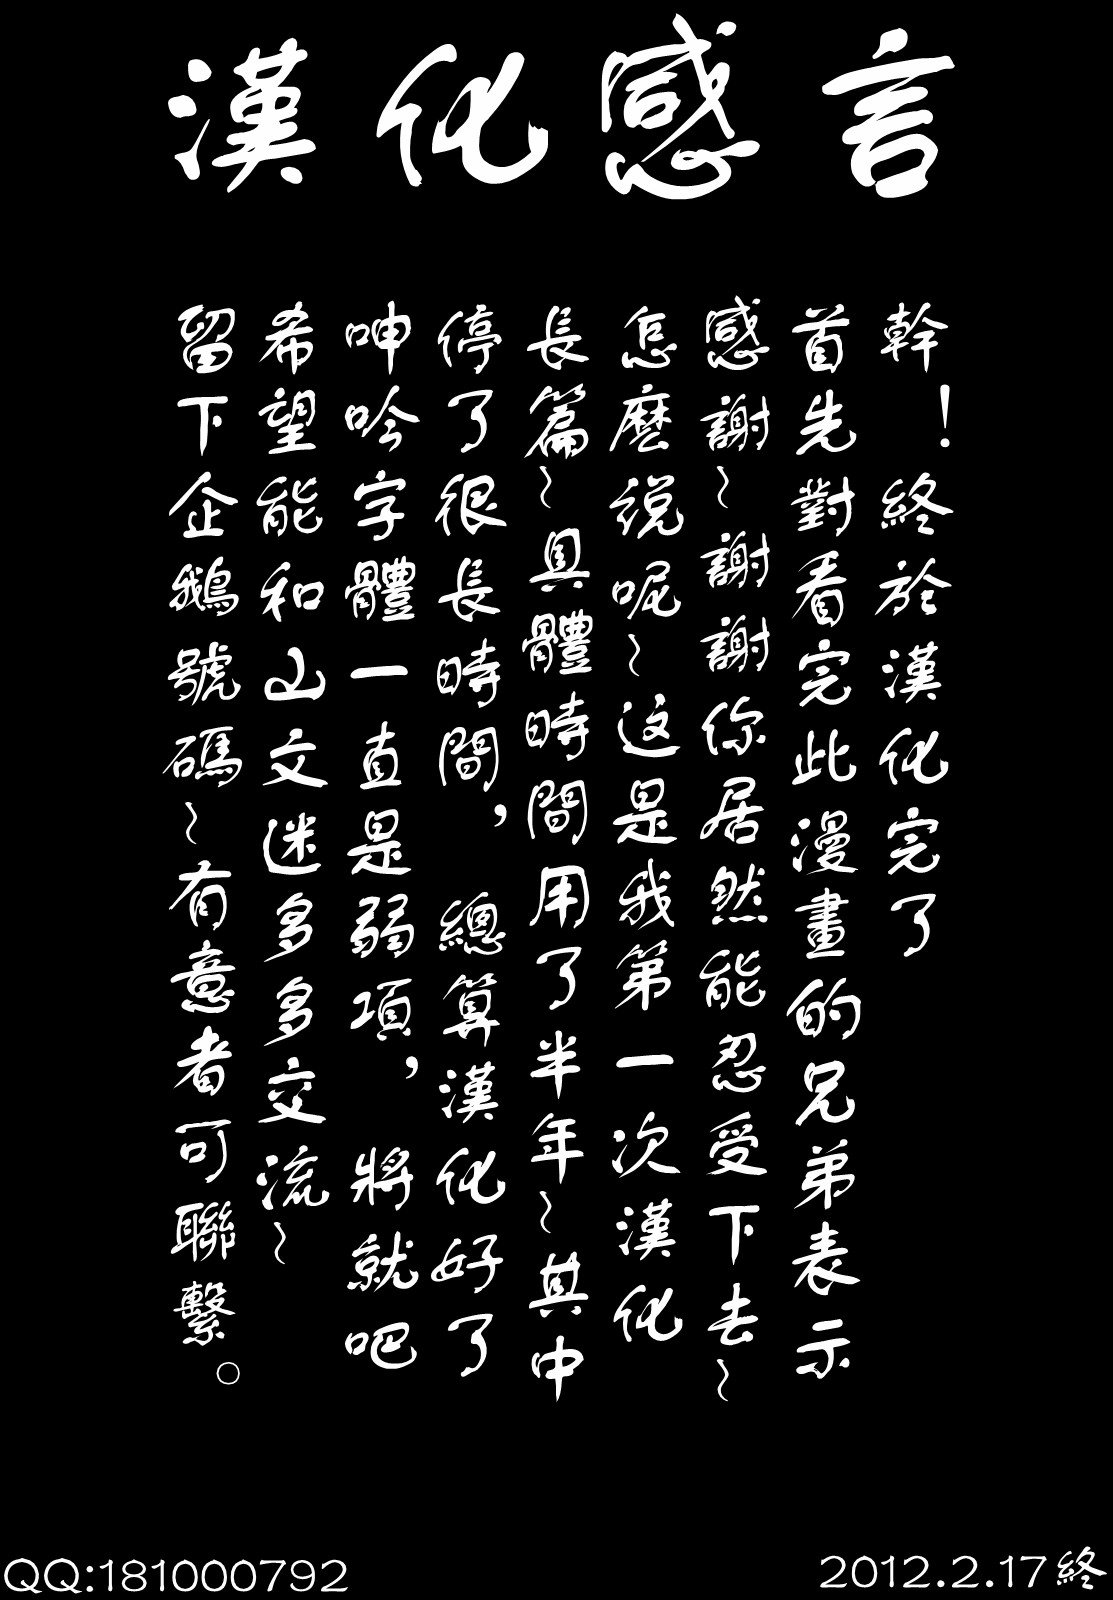 漢化感言
幹！終於漢化完了
首先對看完此漫畫的兄弟表示
感謝~謝謝你居然能忍受下去~
怎麼説呢~这是我第一次漢化
長篇~具體時間用了半年~其中
停了很長時間，總算漢化好了
呻吟字體一直是弱項，將就吧
希望能和山文迷多多交流~
留下企鵝號碼~有意者可聯繫。
QQ:181000792
2012.2.17終